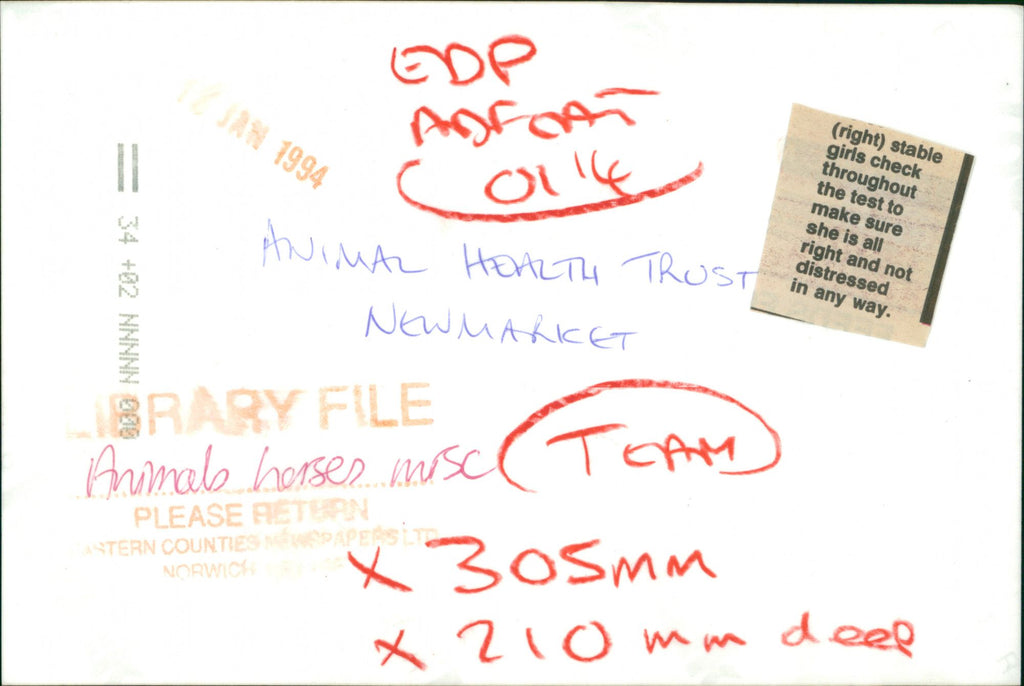 EDP
18 JAN 1994
(right) stable
girls check
throughout
the test to
make sure
she is all
right and not
distressed
in any way.
ANIMAL HEALTH TRUST
NEWMARKET
34 +02 NNNNN 000
LIBRARY FILE
Animals horses misc
TEAM
PLEASE RETURN
EASTERN COUNTIES NEWSPAPERS LTD
NORWICH
x 305mm
x 210 mm deep